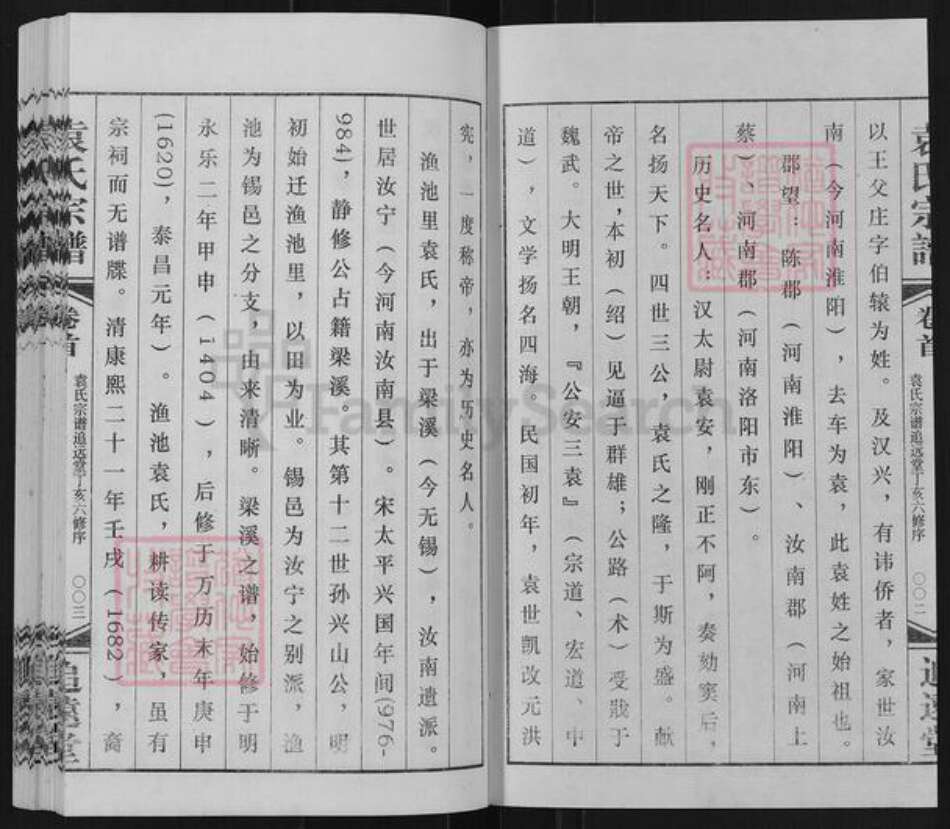 袁氏宗谱
卷首
袁氏宗谱追远堂丁亥六修序
〇〇二
追远堂
以王父庄字伯辕为姓。及汉兴，有讳侨者，家世汝
南（今河南淮阳），去车为袁，此袁姓之始祖也。
郡望：陈郡（河南淮阳）、汝南郡（河南上
蔡）、河南郡（河南洛阳市东）。
历史名人：汉太尉袁安，刚正不阿，奏劾窦后，
名扬天下。四世三公，袁氏之隆，于斯为盛。献
帝之世，本初（绍）见逼于群雄；公路（术）受戮于
魏武。大明王朝，『公安三袁』（宗道、宏道、中
道），文学扬名四海。民国初年，袁世凯改元洪
宪，一度称帝，亦为历史名人。
渔池里袁氏，出于梁溪（今无锡），汝南遗派。
世居汝宁（今河南汝南县）。宋太平兴国年间(976-
984)，静修公占籍梁溪。其第十二世孙兴山公，明
初始迁渔池里，以田为业。锡邑为汝宁之别派，渔
池为锡邑之分支，由来清晰。梁溪之谱，始修于明
永乐二年甲申（1404），后修于万历末年庚申
(1620)，泰昌元年）。渔池袁氏，耕读传家，虽有
宗祠而无谱牒。清康熙二十一年壬戌（1682），裔
袁氏宗谱
卷首
袁氏宗谱追远堂丁亥六修序
〇〇三
追远堂
FamilySearch